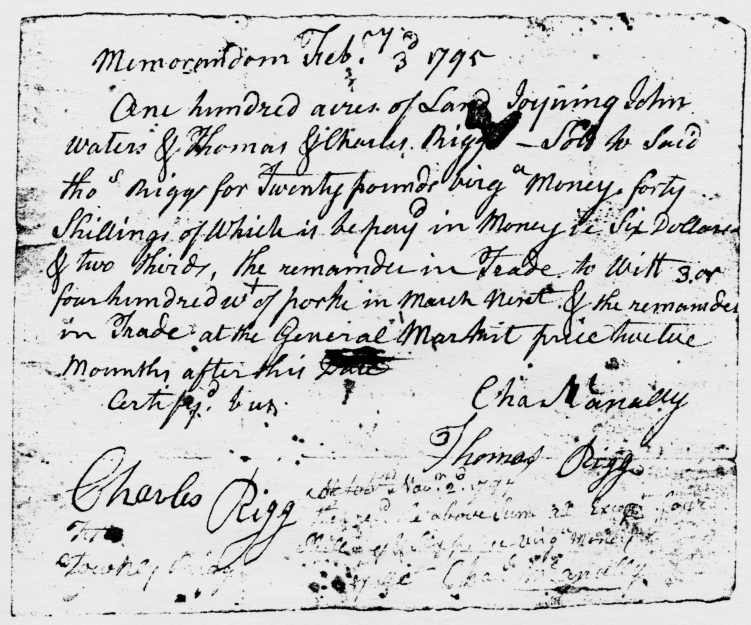 Memorandom Feb.ry 3d 1795
One hundred acres of Land Joyning John
waters & Thomas & Charles Riggs – Sold to Said
thos Riggs for Twenty pounds virga Money. forty
Shillings of Which is to be payd in Money ie Six Dollars
& two thirds, the remainder in Trade to Witt 3. or
four hundred wt of porke in March Next & the remainder
in Trade at the General Markit price twelve
Mounths after this Date
Certifyd by us.
Chas McAnally
Thomas Rigg
Charles Rigg
Novr 2d 179
the above Sum all Except four
Shillings & Six pence virga Money
Chas McAnally
Townly Rigg